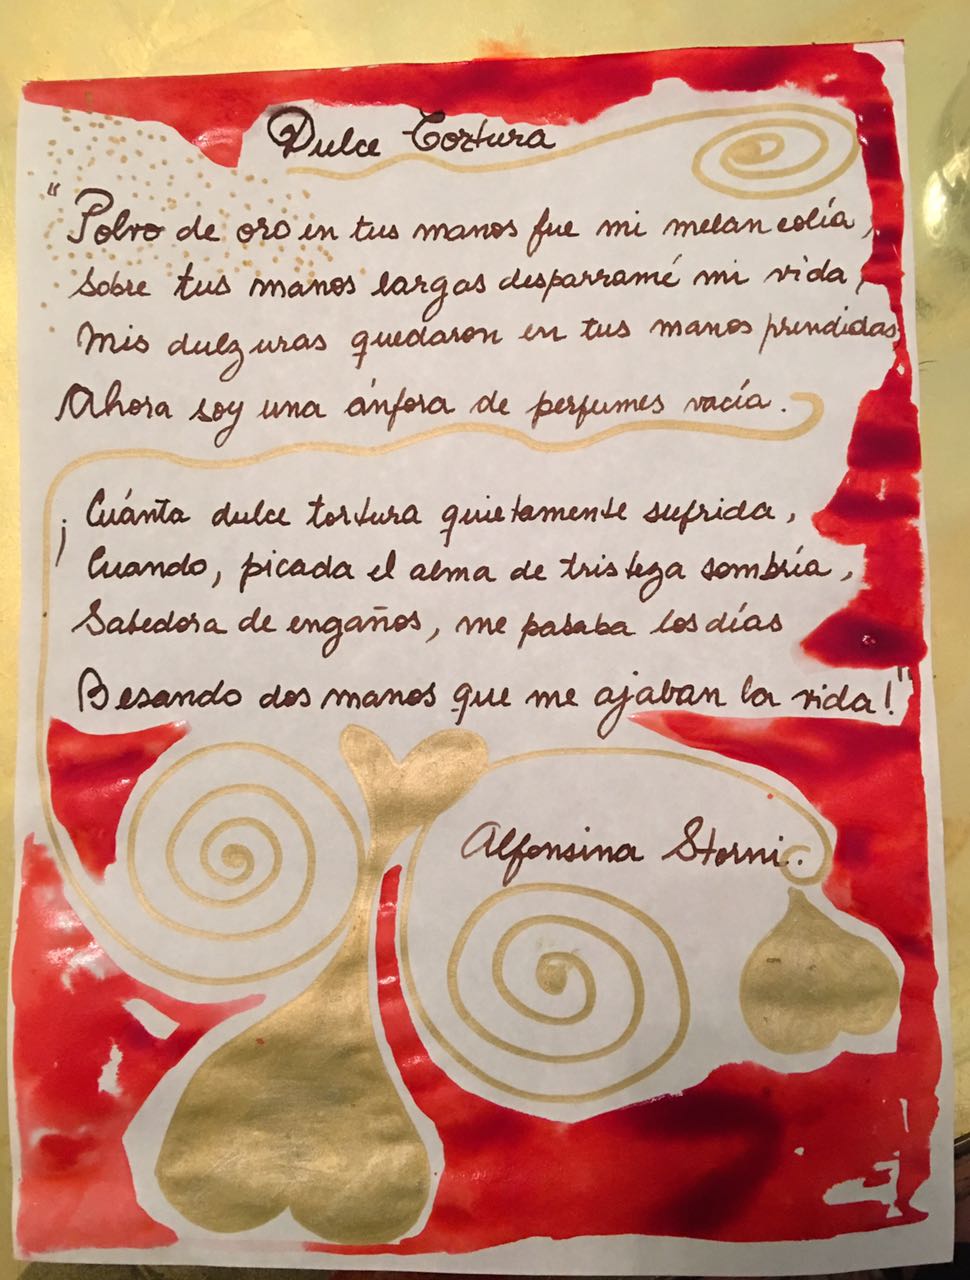 Dulce Tortura
"Polvo de oro en tus manos fue mi melancolía,
Sobre tus manos largas desparramé mi vida,
Mis dulzuras quedaron en tus manos prendidas
Ahora soy una ánfora de perfumes vacía.
¡Cuánta dulce tortura quietamente sufrida,
Cuando, picada el alma de tristeza sombría,
Sabedora de engaños, me pasaba los días
Besando dos manos que me ajaban la vida!"
Alfonsina Storni..